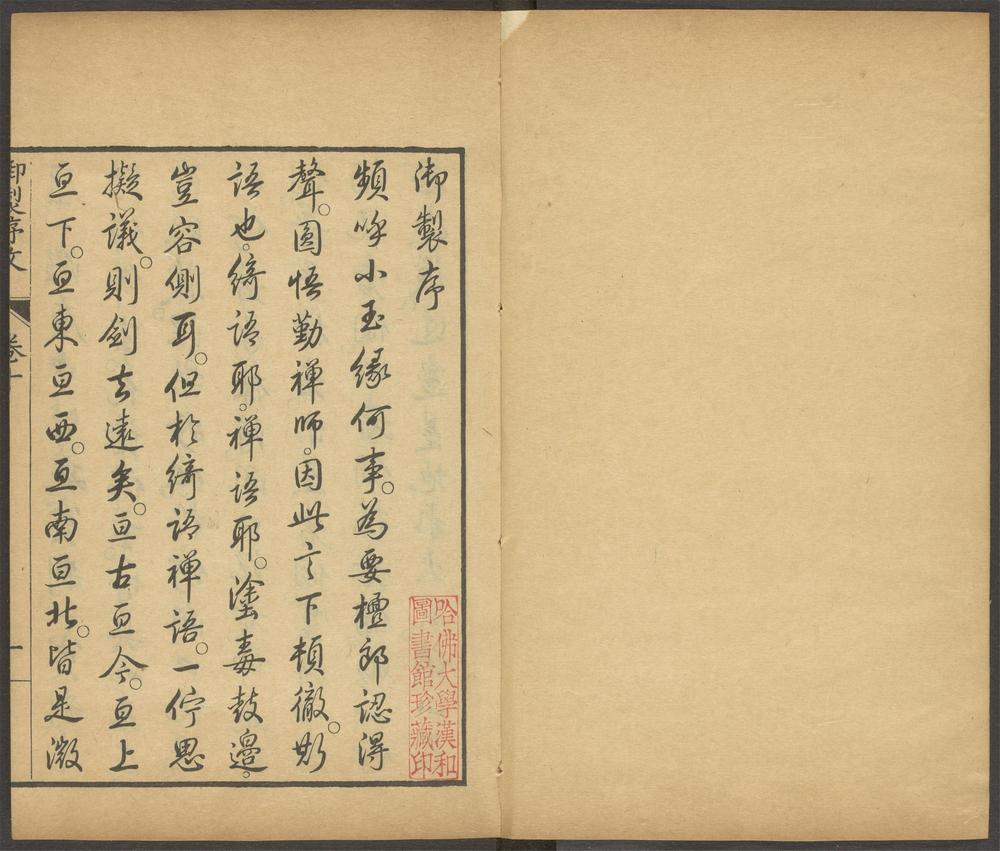 御製序
頻呼小玉緣何事。為要檀郎認得
聲。圓悟勤禪師。因此言下頓徹。斯
語也。綺語耶。禪語耶。塗毒鼓邊。
豈容側耳。但於綺語禪語。一佇思
擬議。則劍去遠矣。亘古亘今。亘上
亘下。亘東亘西。亘南亘北。皆是激
御製序文 卷十一 一
哈佛大學漢和
圖書館珍藏印